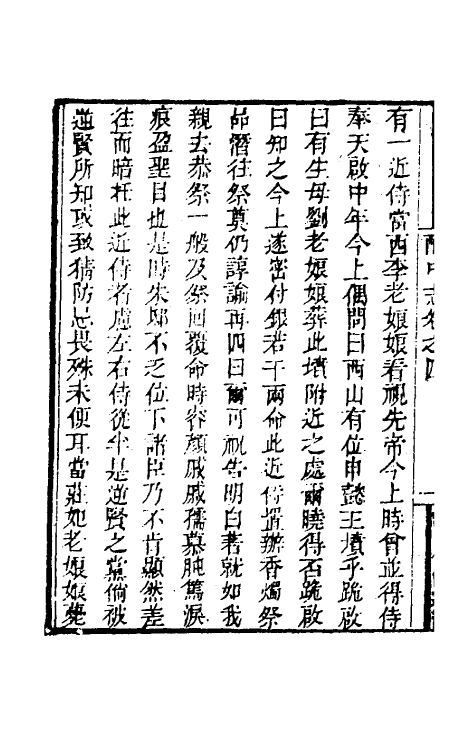 有一近侍當西李老娘娘看視先帝今上時曾並得侍
奉天啟中年今上偶問曰西山有位申懿王墳乎跪啟
曰有生母劉老娘娘葬此墳附近之處爾曉得否跪啟
曰知之今上遂密付銀若干兩命此近侍置辦香燭祭
品潛往祭奠仍諄諭再四曰爾可視告明白著就如我
親去恭祭一般及祭回覆命時容顏戚戚孺慕肫篤淚
痕盈聖目也是時朱邸不乏位下諸臣乃不肯顯然差
往而暗枉此近侍者慮左右侍從半是逆賢之黨倘被
逆賢所知或致猜防忌畏殊未便耳當莊妃老娘娘薨
酌中志卷之四